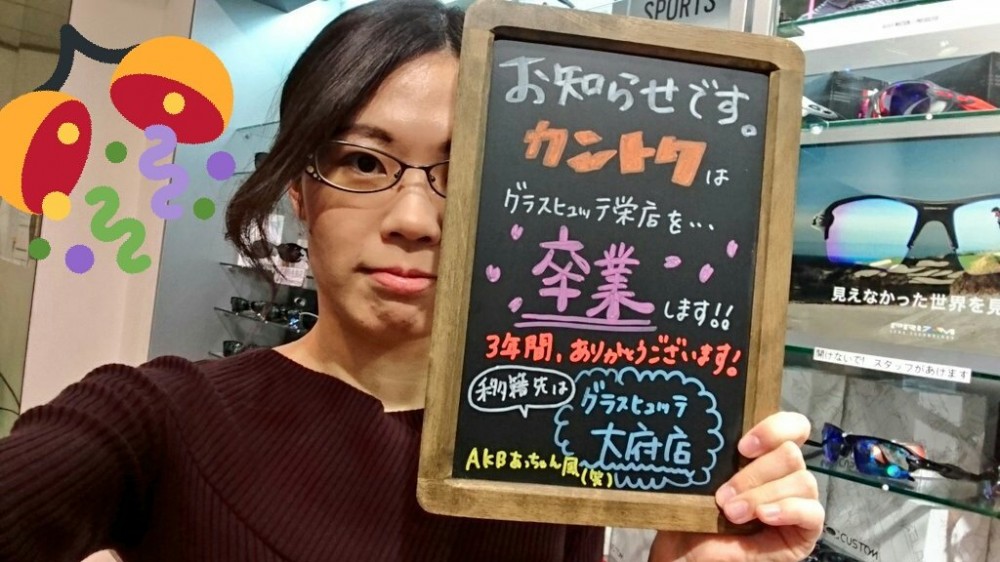 SPORTS
お知らせです。
カントクは
グラスヒュッテ栄店を…
卒業します!!
3年間、ありがとうございます!
移籍先は
グラスヒュッテ
大府店
AKBあっちゃん風(笑)
見えなかった世界を見
PRIZM
開けないで! スタッフがあけます
CUSTOM